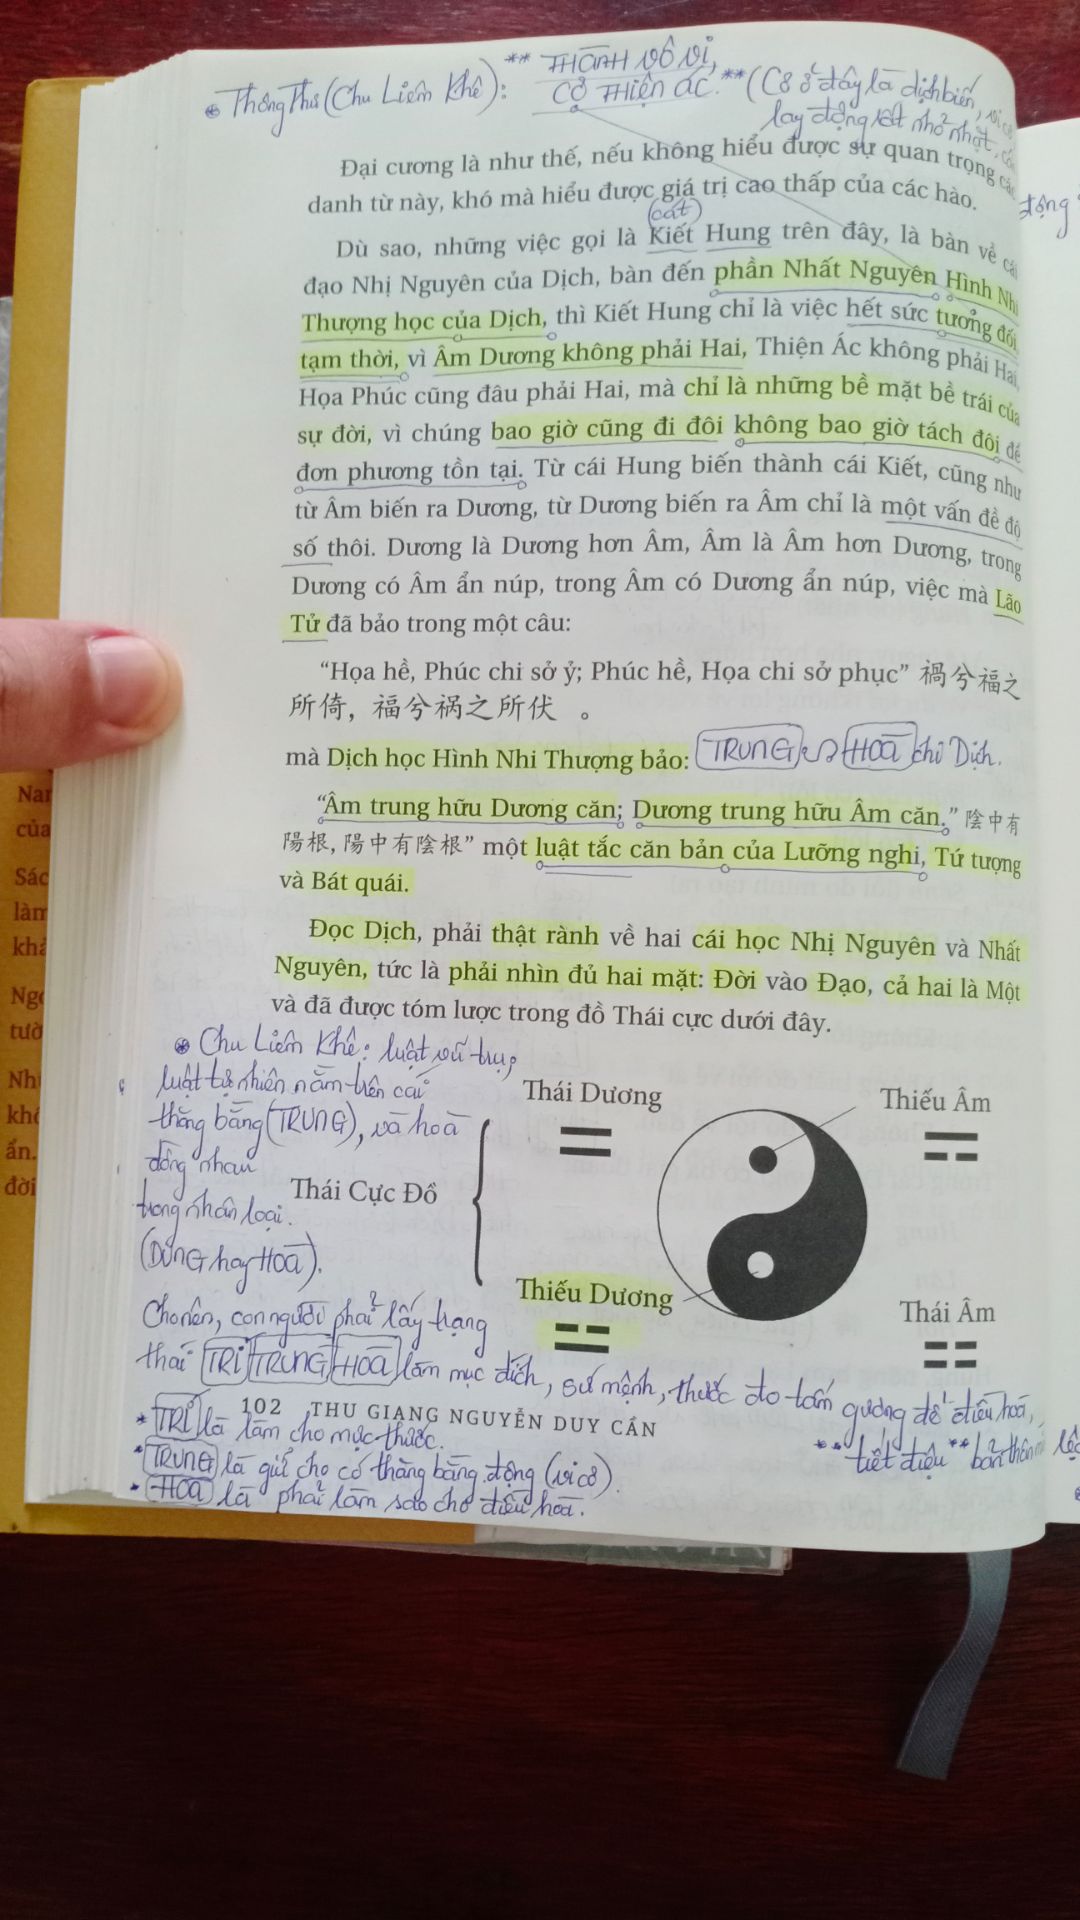 ** THÀNH VÔ VI,
* Thông Thư (Chu Liêm Khê): CƠ THIỆN ÁC. ** (Cơ ở đây là dịch biến, vì có
lay động rất nhỏ nhặt, còn
Đại cương là như thế, nếu không hiểu được sự quan trọng các
danh từ này, khó mà hiểu được giá trị cao thấp của các hào.
động
(cát)
Dù sao, những việc gọi là Kiết Hung trên đây, là bàn về cái
đạo Nhị Nguyên của Dịch, bàn đến phần Nhất Nguyên Hình Nhi
Thượng học của Dịch, thì Kiết Hung chỉ là việc hết sức tương đối,
tạm thời, vì Âm Dương không phải Hai, Thiện Ác không phải Hai,
Họa Phúc cũng đâu phải Hai, mà chỉ là những bề mặt bề trái của
sự đời, vì chúng bao giờ cũng đi đôi không bao giờ tách đôi để
đơn phương tồn tại. Từ cái Hung biến thành cái Kiết, cũng như
từ Âm biến ra Dương, từ Dương biến ra Âm chỉ là một vấn đề độ
số thôi. Dương là Dương hơn Âm, Âm là Âm hơn Dương, trong
Dương có Âm ẩn núp, trong Âm có Dương ẩn núp, việc mà Lão
Tử đã bảo trong một câu:
“Họa hề, Phúc chi sở ỷ; Phúc hề, Họa chi sở phục” 禍兮福之
所倚，福兮祸之所伏 。
mà Dịch học Hình Nhi Thượng bảo: TRUNG HOÀ chi Dịch.
“Âm trung hữu Dương căn; Dương trung hữu Âm căn.” 陰中有
陽根, 陽中有陰根” một luật tắc căn bản của Lưỡng nghi, Tứ tượng
và Bát quái.
Đọc Dịch, phải thật rành về hai cái học Nhị Nguyên và Nhất
Nguyên, tức là phải nhìn đủ hai mặt: Đời vào Đạo, cả hai là Một
và đã được tóm lược trong đồ Thái cực dưới đây.
* Chu Liêm Khê: luật vũ trụ,
luật tự nhiên nằm trên cái
thăng bằng (TRUNG), và hoà
đồng nhau
trong nhân loại.
(DUNG hay HOÀ).
Thái Dương
Thiếu Âm
Thái Cực Đồ
Thiếu Dương
Thái Âm
Cho nên, con người phải lấy trạng
thái TRÍ TRUNG HOÀ làm mục đích, sứ mệnh, thước đo tấm gương để điều hoà,
** tiết điệu ** bản thân
102 THU GIANG NGUYỄN DUY CẦN
* TRÍ là làm cho mực thước.
* TRUNG là giữ cho có thăng bằng động (vi cơ).
* HOÀ là phải làm sao cho điều hoà.
Nan
của
Sác
làm
khả
Ngo
tườ
Nhi
khô
ẩn.
đời